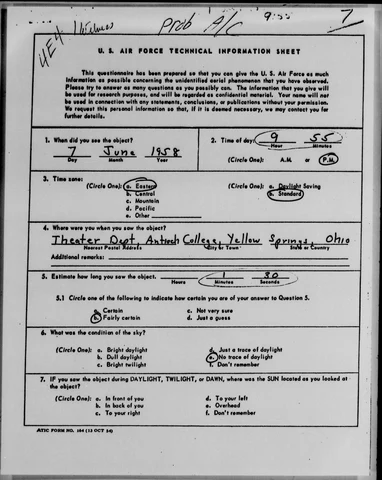 4E4 Witness Prob A/C 9:55 7
U. S. AIR FORCE TECHNICAL INFORMATION SHEET
This questionnaire has been prepared so that you can give the U. S. Air Force as much
information as possible concerning the unidentified aerial phenomenon that you have observed.
Please try to answer as many questions as you possibly can. The information that you give will
be used for research purposes, and will be regarded as confidential material. Your name will not
be used in connection with any statements, conclusions, or publications without your permission.
We request this personal information so that, if it is deemed necessary, we may contact you for
further details.
1. When did you see the object?
7 June 1958
Day Month Year
2. Time of day: 9 55
Hour Minutes
(Circle One): A.M. or P.M.
3. Time zone:
(Circle One): a. Eastern
b. Central
c. Mountain
d. Pacific
e. Other
(Circle One): a. Daylight Saving
b. Standard
4. Where were you when you saw the object?
Theater Dept, Antioch College, Yellow Springs, Ohio
Nearest Postal Address City or Town State or Country
Additional remarks:
5. Estimate how long you saw the object. 1 30
Hours Minutes Seconds
5.1 Circle one of the following to indicate how certain you are of your answer to Question 5.
a. Certain
b. Fairly certain
c. Not very sure
d. Just a guess
6. What was the condition of the sky?
(Circle One): a. Bright daylight
b. Dull daylight
c. Bright twilight
d. Just a trace of daylight
e. No trace of daylight
f. Don't remember
7. IF you saw the object during DAYLIGHT, TWILIGHT, or DAWN, where was the SUN located as you looked at
the object?
(Circle One): a. In front of you
b. In back of you
c. To your right
d. To your left
e. Overhead
f. Don't remember
ATIC FORM NO. 164 (13 OCT 54)